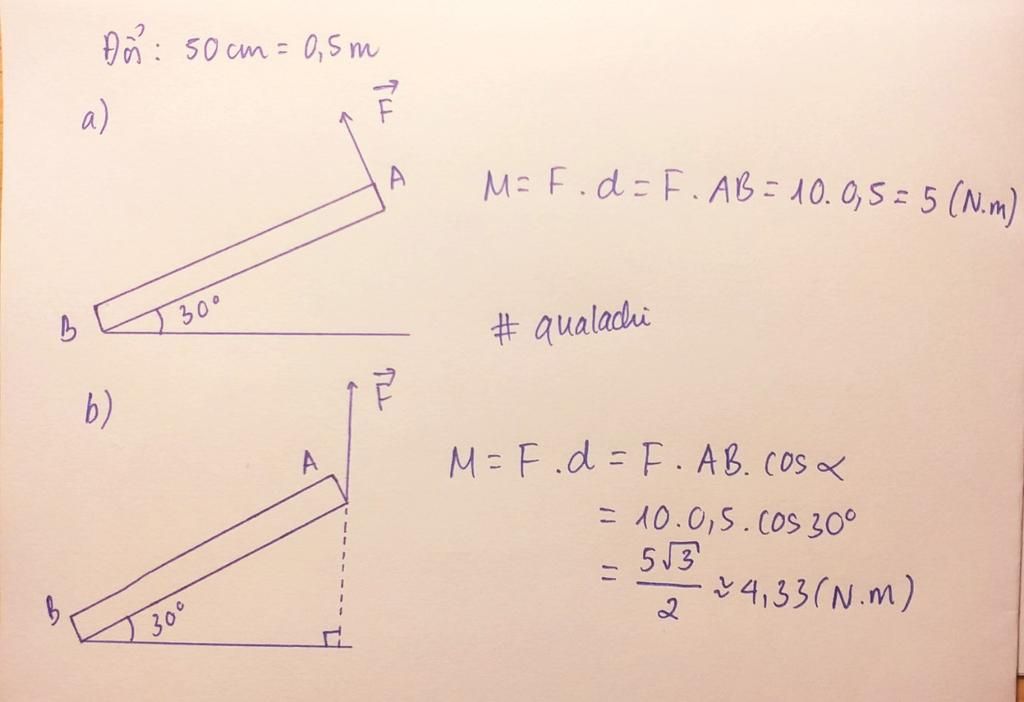 Đổi: 50 cm = 0,5 m
a)
F
A
M = F . d = F . AB = 10. 0,5 = 5 (N.m)
B
30°
# qualachi
b)
F
A
M = F . d = F . AB. cos α
= 10.0,5. cos 30°
= 5√3/2 ≈ 4,33 (N.m)
B
30°